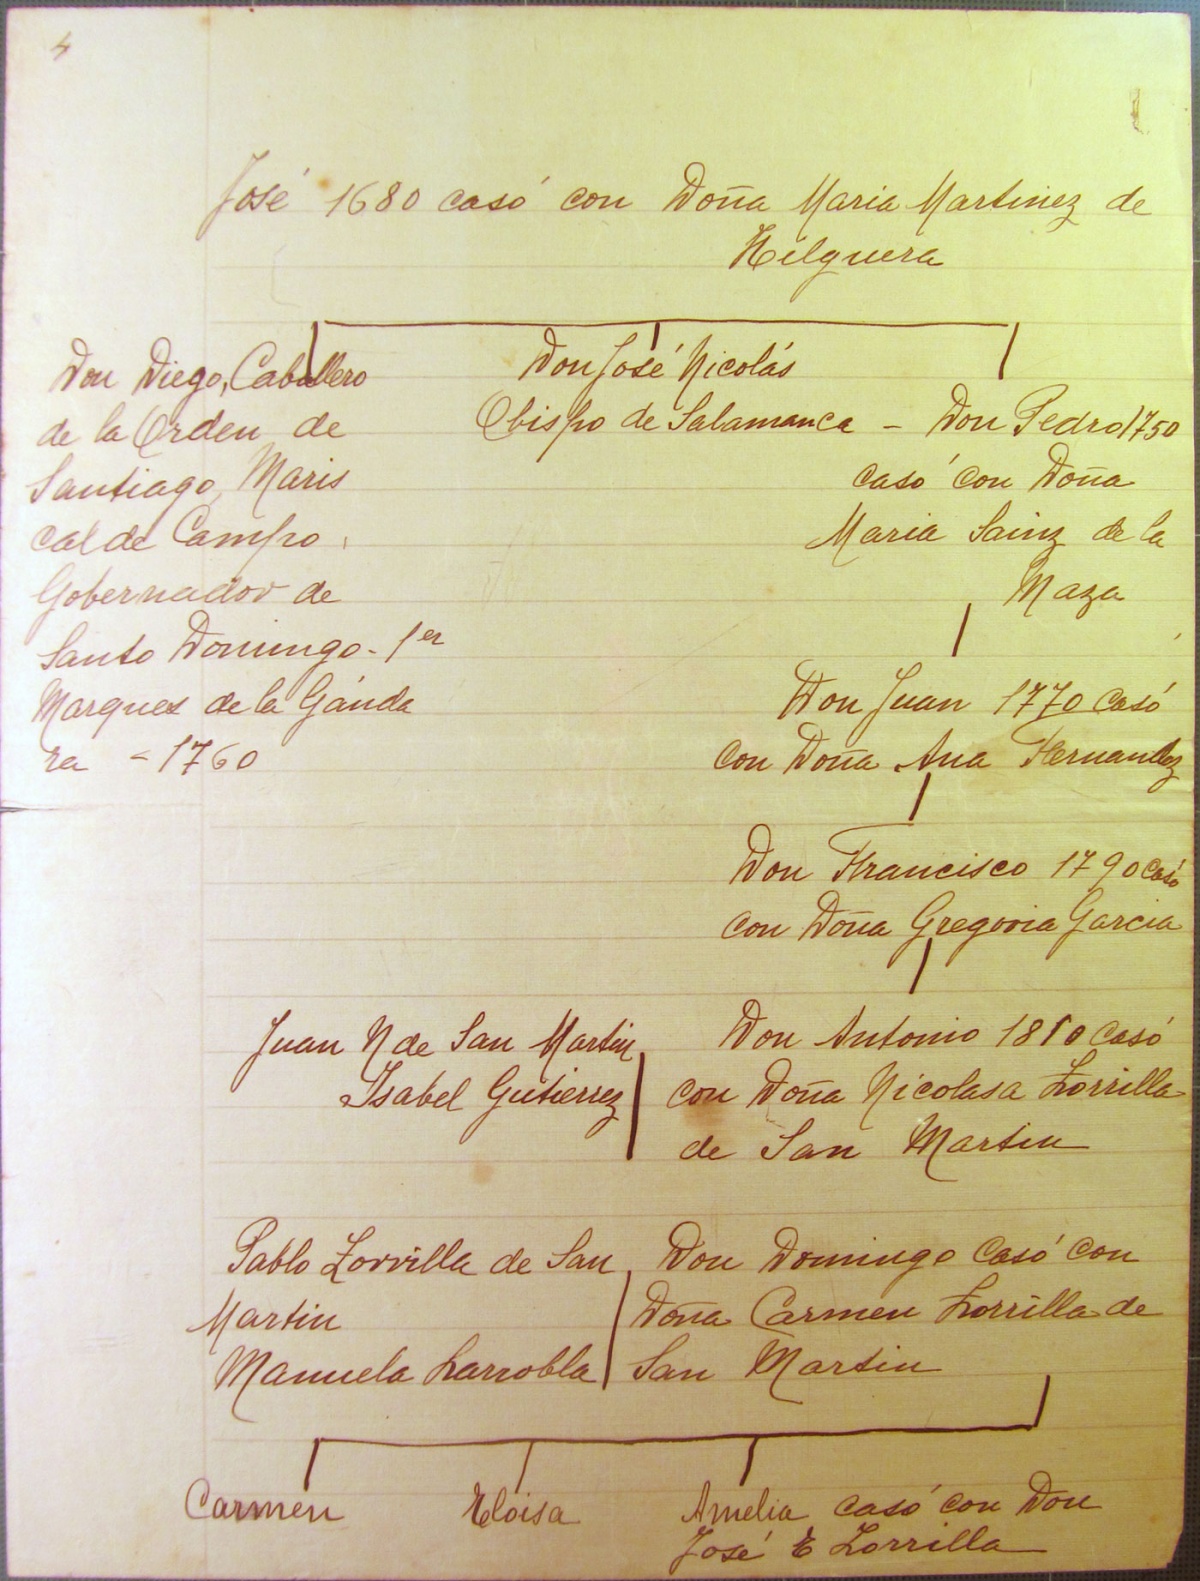 4
José 1680 casó con Doña Maria Martinez de
Helguera
Don Diego, Caballero
de la Orden de
Santiago, Maris
cal de Campo,
Gobernador de
Santo Domingo - 1er
Marques de la Gánda
ra - 1760
Don José Nicolás
Obispo de Salamanca - Don Pedro 1750
casó con Doña
Maria Sainz de la
Maza
Don Juan 1770 casó
con Doña Ana Hernandez
Don Francisco 1790 casó
con Doña Gregoria Garcia
Juan N de San Martin
Isabel Gutierrez
Don Antonio 1810 casó
con Doña Nicolasa Zorrilla
de San Martin
Pablo Zorrilla de San
Martin
Manuela Larrobla
Don Domingo casó con
Doña Carmen Zorrilla de
San Martin
Carmen
Eloisa
Amelia casó con Don
José E Zorrilla